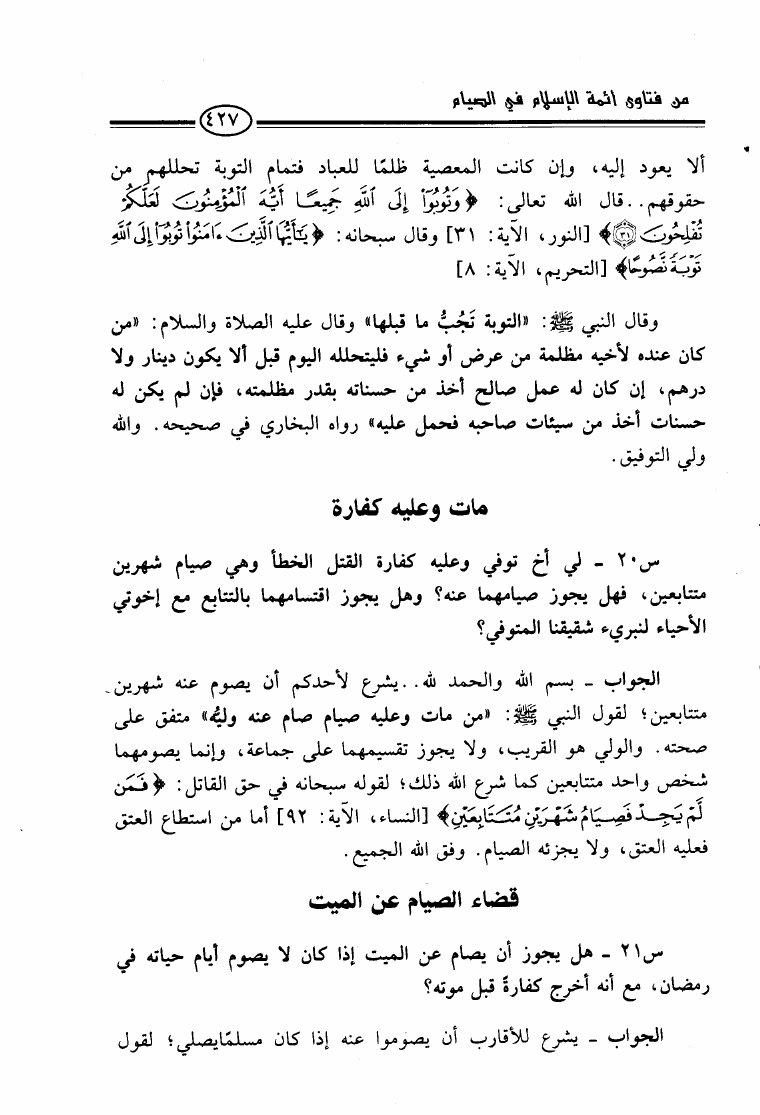 من فتاوى أئمة الإسلام في الصيام
٤٢٧
ألا يعود إليه، وإن كانت المعصية ظلمًا للعباد فتمام التوبة تحللهم من
حقوقهم..قال الله تعالى: ﴿وَتُوبُوٓا۟ إِلَى ٱللَّهِ جَمِيعًا أَيُّهَ ٱلْمُؤْمِنُونَ لَعَلَّكُمْ
تُفْلِحُونَ ۝٣١﴾ [النور، الآية: ٣١] وقال سبحانه: ﴿يَـٰٓأَيُّهَا ٱلَّذِينَ ءَامَنُوا۟ تُوبُوٓا۟ إِلَى ٱللَّهِ
تَوْبَةً نَّصُوحًا﴾ [التحريم، الآية: ٨]
وقال النبي ﷺ: «التوبة تَجُبُّ ما قبلها» وقال عليه الصلاة والسلام: «من
كان عنده لأخيه مظلمة من عرض أو شيء فليتحلله اليوم قبل ألا يكون دينار ولا
درهم، إن كان له عمل صالح أخذ من حسناته بقدر مظلمته، فإن لم يكن له
حسنات أخذ من سيئات صاحبه فحمل عليه» رواه البخاري في صحيحه. والله
ولي التوفيق.
مات وعليه كفارة
س٢٠ - لي أخ توفي وعليه كفارة القتل الخطأ وهي صيام شهرين
متتابعين، فهل يجوز صيامهما عنه؟ وهل يجوز اقتسامهما بالتتابع مع إخوتي
الأحياء لنبريء شقيقنا المتوفي؟
الجواب - بسم الله والحمد لله..يشرع لأحدكم أن يصوم عنه شهرين
متتابعين؛ لقول النبي ﷺ: «من مات وعليه صيام صام عنه وليُّه» متفق على
صحته. والولي هو القريب، ولا يجوز تقسيمهما على جماعة، وإنما يصومهما
شخص واحد متتابعين كما شرع الله ذلك؛ لقوله سبحانه في حق القاتل: ﴿فَمَن
لَّمْ يَجِدْ فَصِيَامُ شَهْرَيْنِ مُتَتَابِعَيْنِ﴾ [النساء، الآية: ٩٢] أما من استطاع العتق
فعليه العتق، ولا يجزئه الصيام. وفق الله الجميع.
قضاء الصيام عن الميت
س٢١ - هل يجوز أن يصام عن الميت إذا كان لا يصوم أيام حياته في
رمضان، مع أنه أخرج كفارةً قبل موته؟
الجواب - يشرع للأقارب أن يصوموا عنه إذا كان مسلمًا يصلي؛ لقول